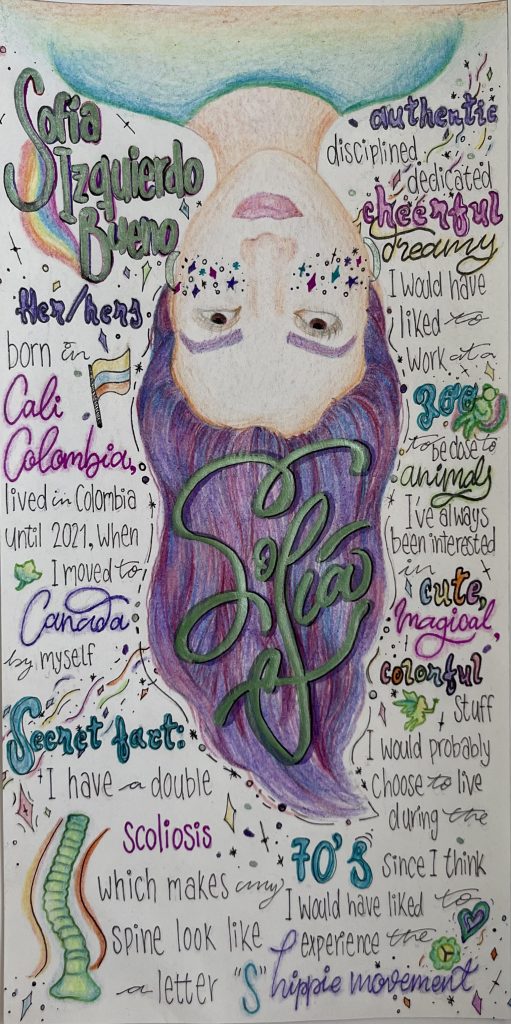 Sofía
Izquierdo
Bueno
Her/hers
born in
Cali
Colombia,
lived in Colombia
until 2021, when
I moved to
Canada
by myself
Secret fact:
I have a double
scoliosis
which makes my
spine look like
a letter "S"
Sofía
authentic
disciplined
dedicated
cheerful
dreamy
I would have
liked to
work at a
zoo
to be close to
animals
I've always
been interested
in
cute,
magical,
colorful
stuff
I would probably
choose to live
during the
70's since I think
I would have liked to
experience the
hippie movement